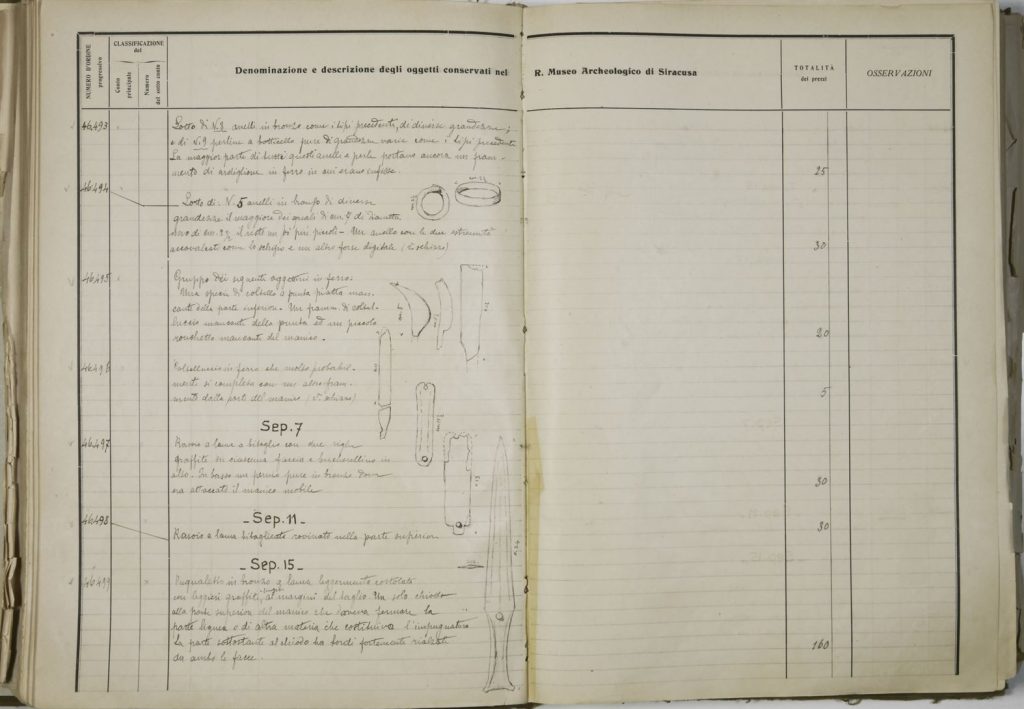 NUMERO D'ORDINE progressivo
CLASSIFICAZIONE del
Conto principale
Numero del sotto conto
Denominazione e descrizione degli oggetti conservati nel R. Museo Archeologico di Siracusa
TOTALITÀ dei prezzi
OSSERVAZIONI
46.493
Lotto di N. 8 anelli in bronzo come i tipi precedenti, di diverse grandezze;
e di N. 9 perline a botticello pure di grandezza varie come i tipi precedenti
La maggior parte di questi anelli e perle portano ancora un fram-
mento di ardiglione in ferro in cui erano infisse.
25
46.494
Lotto di N. 5 anelli in bronzo di diverse
grandezze il maggiore dei quali di cm. di diametro
il resto un po' più piccoli - Un anello con le due estremità
accavalcate come lo schizzo e un altro forse digitale (v. schizzo)
30
46.495
Gruppo dei seguenti oggettini in ferro.
Una specie di coltello a punta piatta man-
cante della parte inferiore. Un framm. di coltel-
luccio mancante della punta ed un piccolo
ronchetto mancante del manico.
20
46.496
Coltelluccio in ferro che molto probabil-
mente si completa con un altro fram-
mento dalla parte del manico (v. schizzo)
5
Sep. 7
46.497
Rasoio a lama a bitaglio con due righe
graffite su ciascuna faccia e bucherellino in
alto. In basso un pernio pure in bronzo dove
era attaccato il manico mobile
30
_ Sep. 11 _
46.498
Rasoio a lama bitagliata rovinato nella parte superiore
30
_ Sep. 15 _
46.499
Pugnaletto in bronzo a lama leggermente costolata
con leggieri graffiti, ai margini del taglio. Un solo chiodo
alla parte superiore del manico che doveva fermare la
parte lignea o di altra materia che costituiva l'impugnatura
La parte sottostante al chiodo ha bordi fortemente rialzati
da ambo le facce.
160